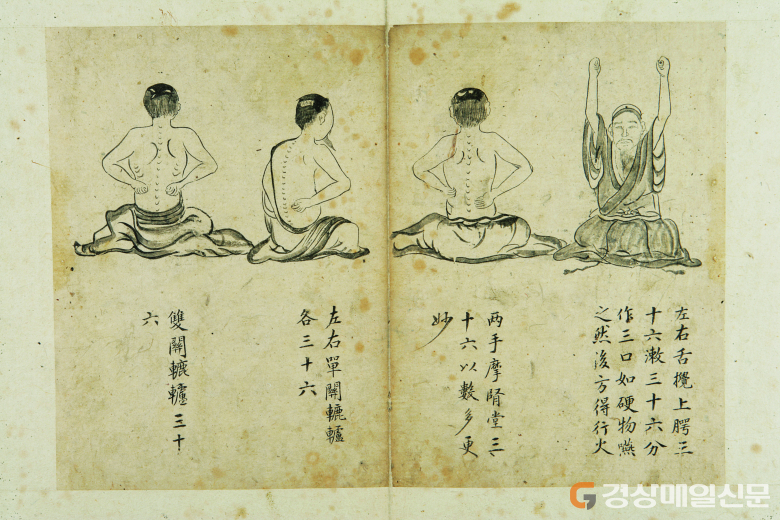 左右舌攪上腭三
十六漱三十六分
作三口如硬物嚥
之然後方得行火
两手摩腎堂三
十六以數多更
妙
左右單關轆轤
各三十六
雙關轆轤三十
六
경상매일신문